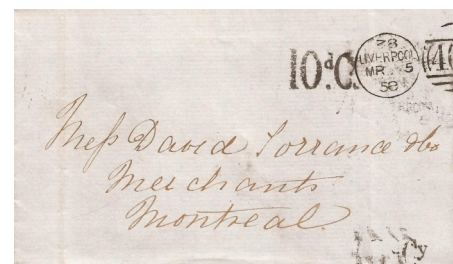 10d.C.
28
LIVERPOOL
MR 5
58
46
Mess David Torrance &Co
Merchants
Montreal